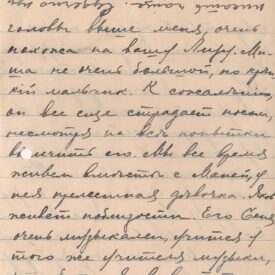 головы выше меня, очень
похожа на вашу Лиру. Ми-
ша не очень большой, но креп-
кий мальчик. К сожалению,
он все еще страдает носом,
несмотря на все попытки
вылечить его. Мы все время
живем вместе с Манет, у
нея прелестная девочка. Яков
живет поблизости. Его Сеня
очень музыкален, учится у
того же учителя музыки,